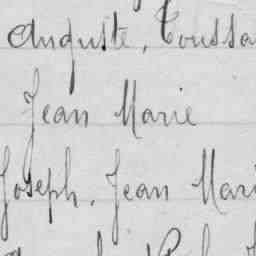 Auguste, Toussa
Jean Marie
Joseph, Jean Mari